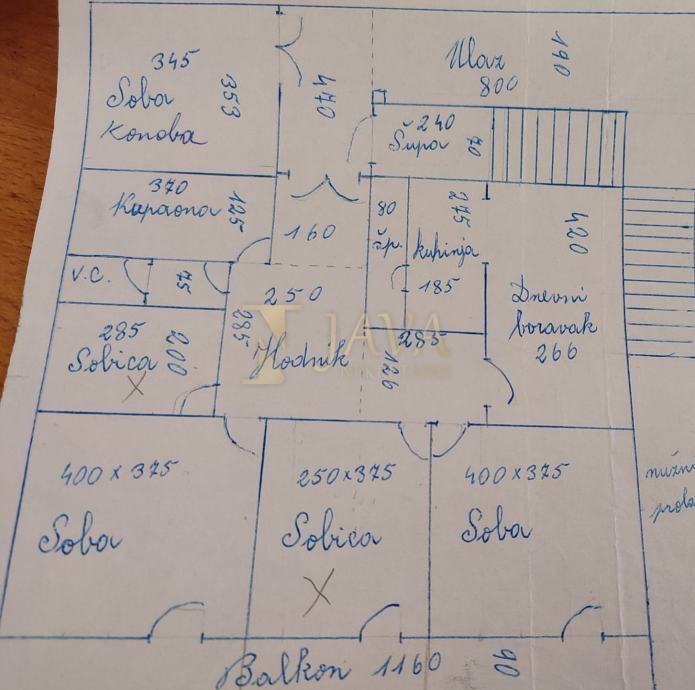 345
Soba
Konoba
353
470
Ulaz
800
190
240
Šupa
70
370
Kupaona
125
160
80
šp.
275
kuhinja
185
420
Dnevni
boravak
266
V.C.
75
250
285
Hodnik
285
126
JAVA
285
Sobica
200
X
400 x 375
Soba
250x375
Sobica
X
400x375
Soba
nužni
Balkon 1160
90